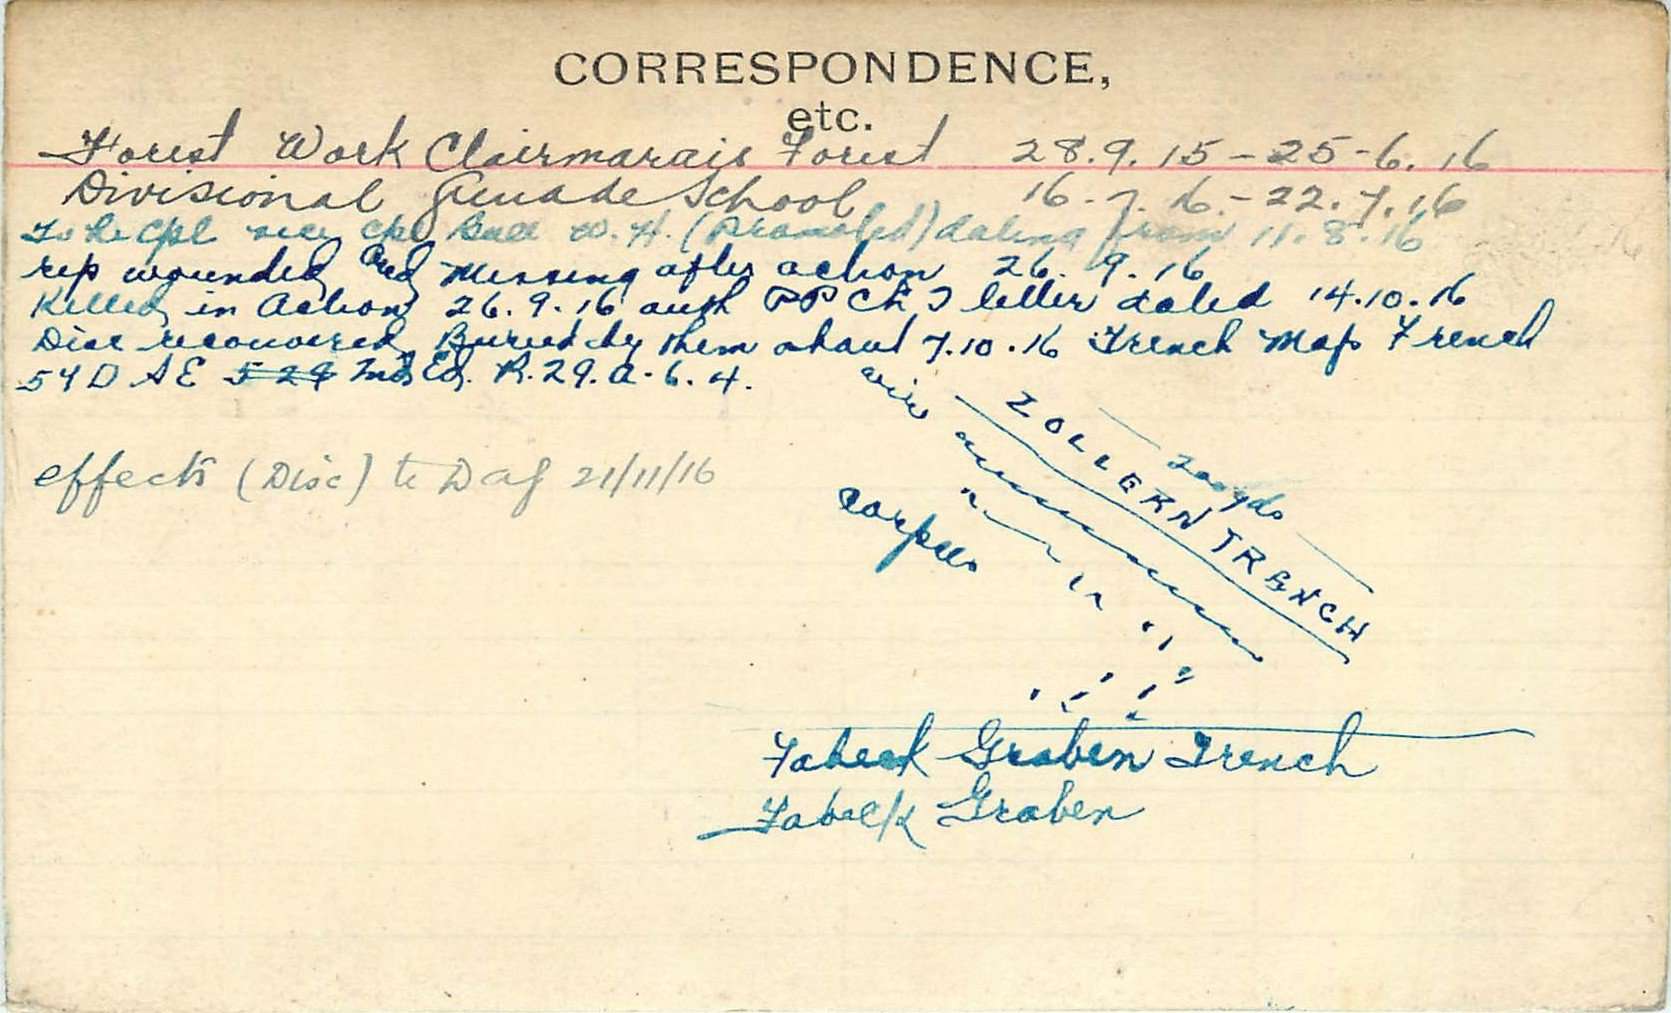 CORRESPONDENCE,
etc.
Forest Work Clairmarais Forest 28.9.15 - 25-6.16
Divisional Grenade School 16.7.16 - 22.7.16
To be Cpl vice Cpl W.H. (Promoted) dating from 11.8.16
rep wounded and missing after action 26.9.16
Killed in Action 26.9.16 auth letter dated 14.10.16
Disc recovered Buried by them about 7.10.16 Trench Map French
57D SE 2nd Ed. R.29.a.6.4.
wire
ZOLLERN TRENCH
200 yds
corpses
effects (Disc) to Dag 21/11/16
Fabeck Graben Trench
Fabeck Graben